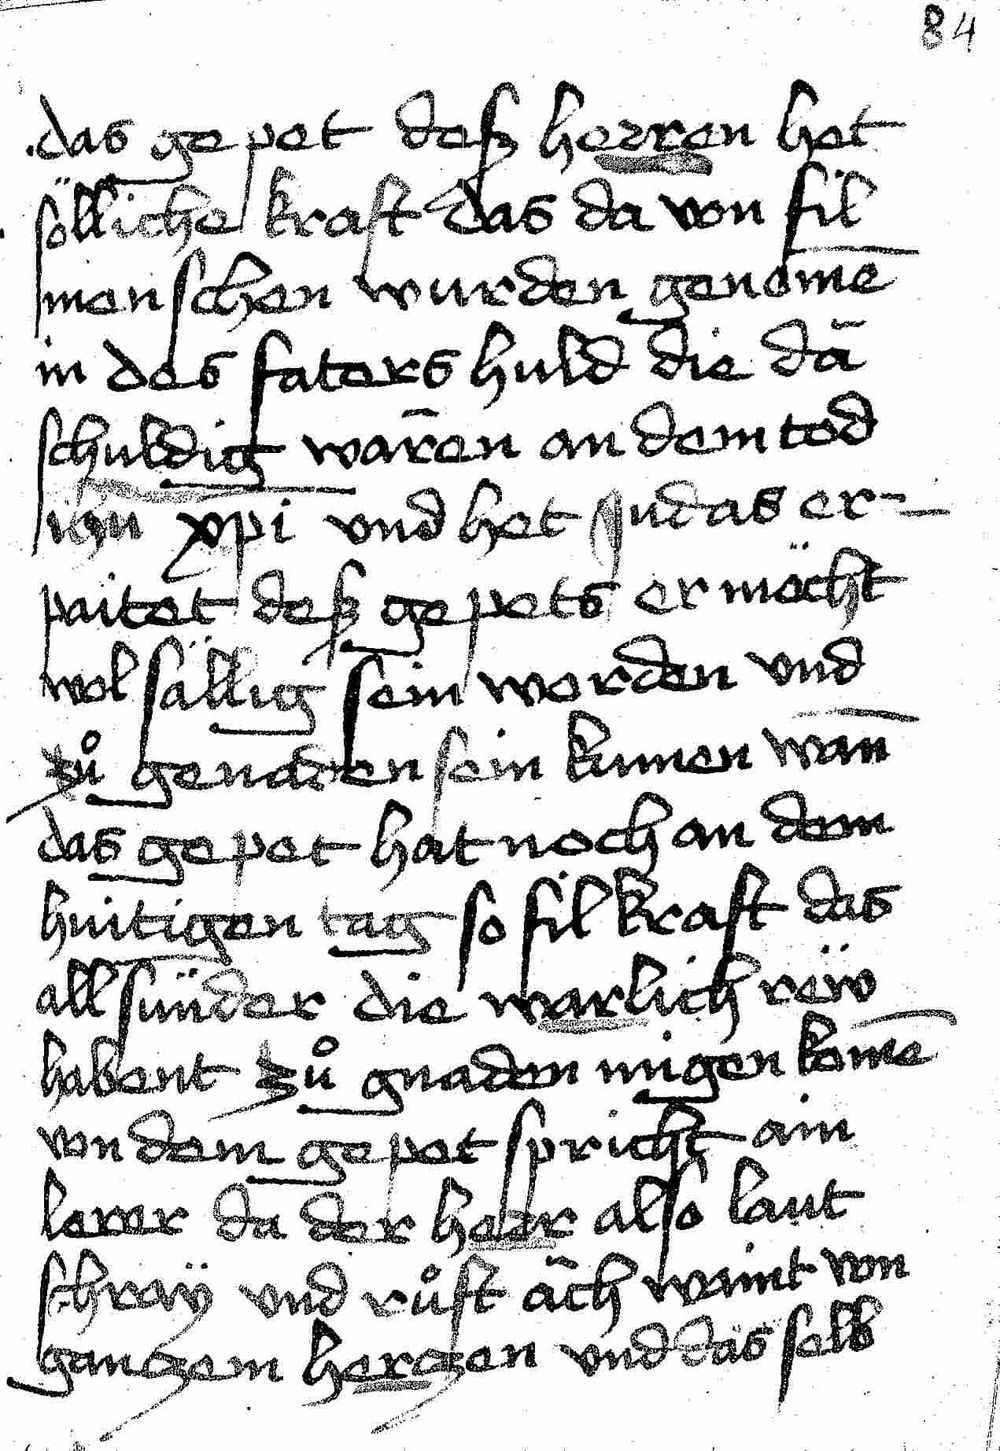 84
das gepet deß herren het
sölliche kraft das da von fil
menschen wurden genome̅
in des faters huld die da̅
schuldig wāren an dem tod
ihu xpi vnd het Judas er=
paitet deß gepets er möcht
wol sällig sein worden vnd
zů genaden sein kumen wan̅
das gepet hat noch an dem
huitigen tag so fil kraft das
all sünder die warlich rëw
habent zů gnaden migen kome̅
von dem gepet spricht ain
lerer da der herr also laut
schraÿ vnd růft āch waint von
ganczem herczen vnd das selb